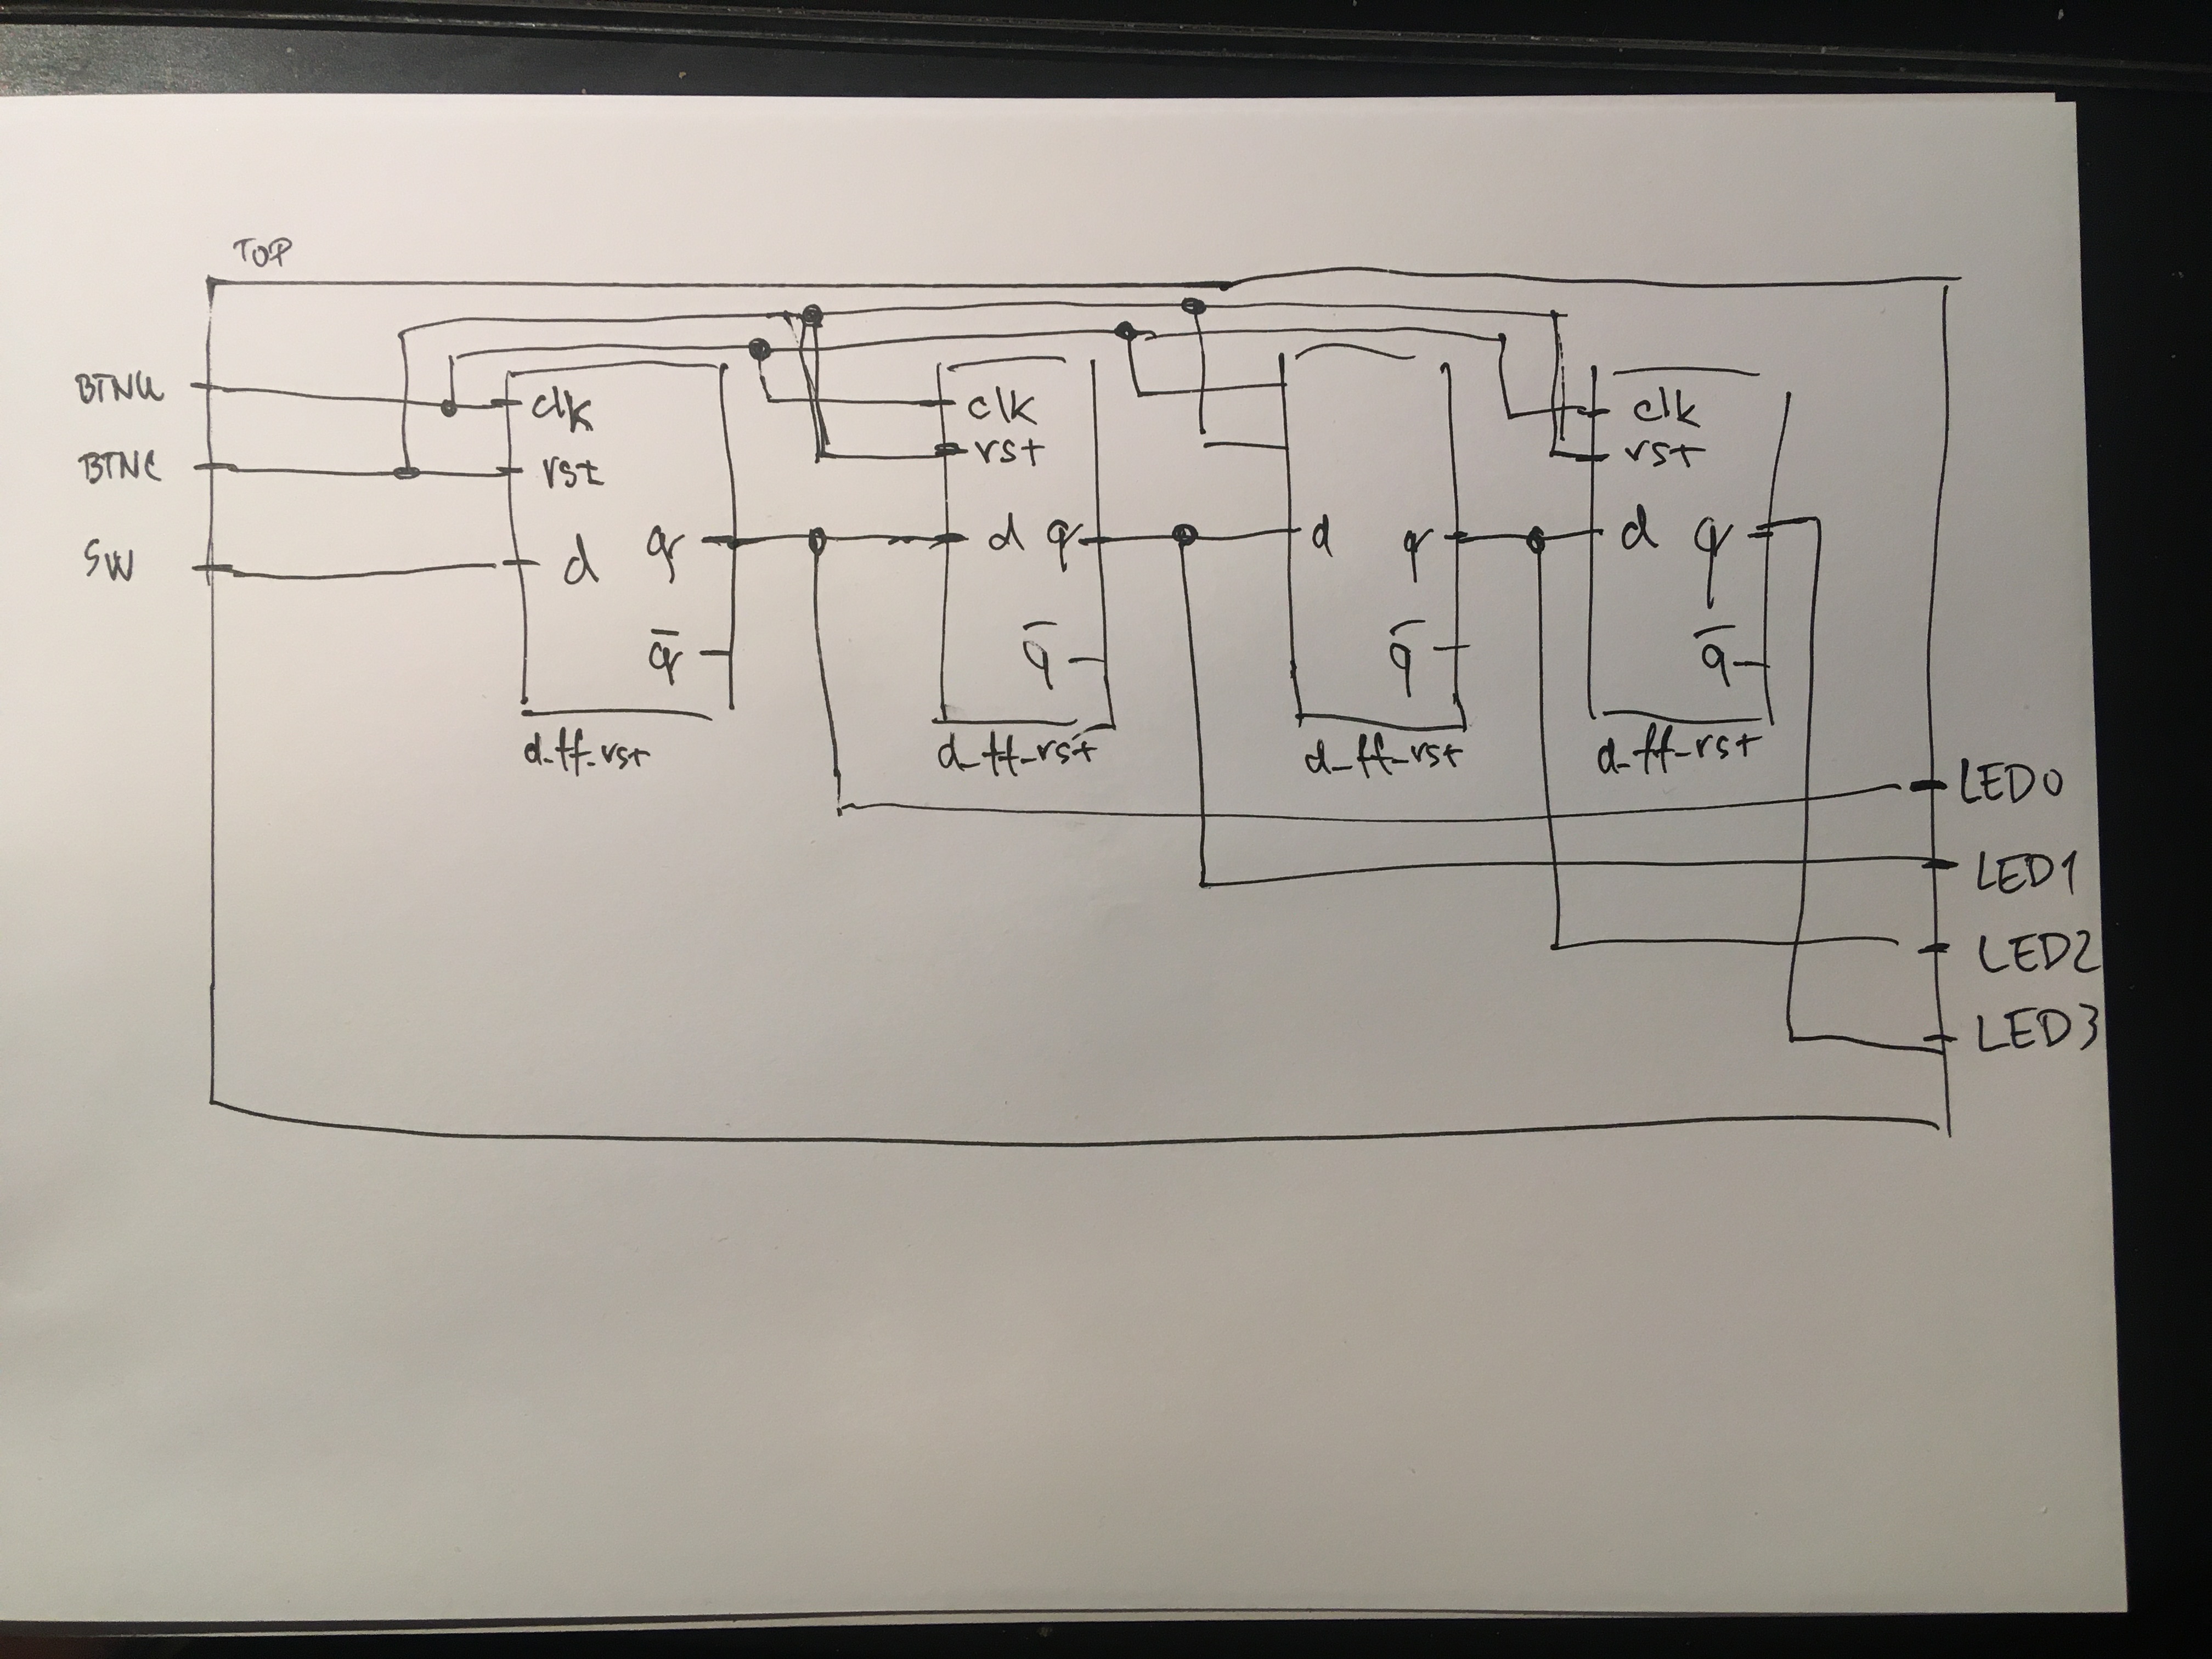 TOP
BTNU
BTNC
SW
clk
rst
d
q
q̅
d_ff_rst
clk
rst
d q
q̅
d_ff_rst
d
q
q̅
d_ff_rst
clk
rst
d q
q̅
d_ff_rst
LED0
LED1
LED2
LED3